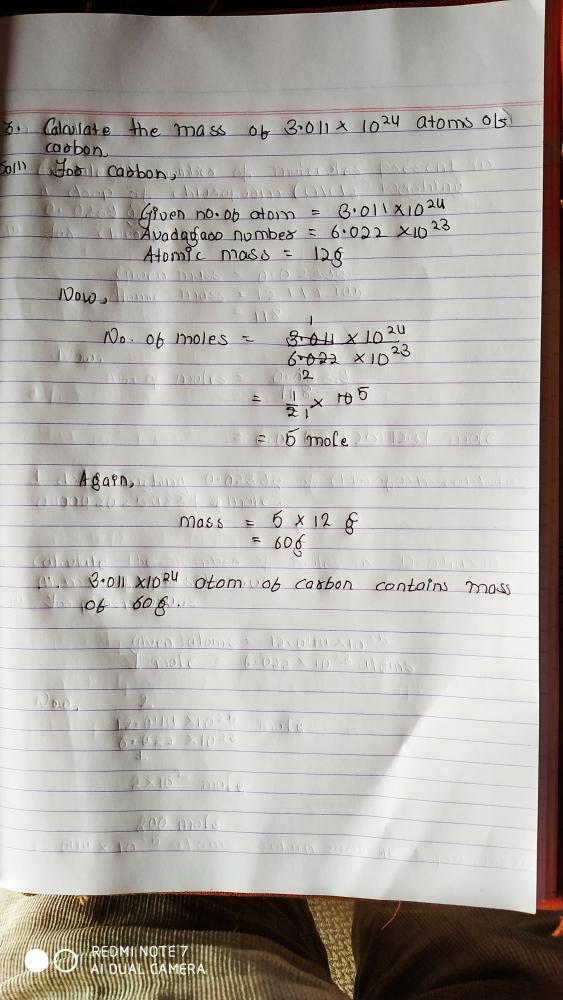 3. Calculate the mass of 3.011 × 10^24 atoms of
carbon.
Sol) For carbon,
Given no. of atom = 3.011 ×10^24
Avadagaro number = 6.022 ×10^23
Atomic mass = 12g
Now,
1
No. of moles = 3.011 × 10^24
6.022 × 10^23
2
= 1/2 × 10 5
1
= 5 mole
Again,
mass = 5 × 12 g
= 60g
∴ 3.011 ×10^24 atom of carbon contains mass
of 60g.
REDMI NOTE 7
AI DUAL CAMERA